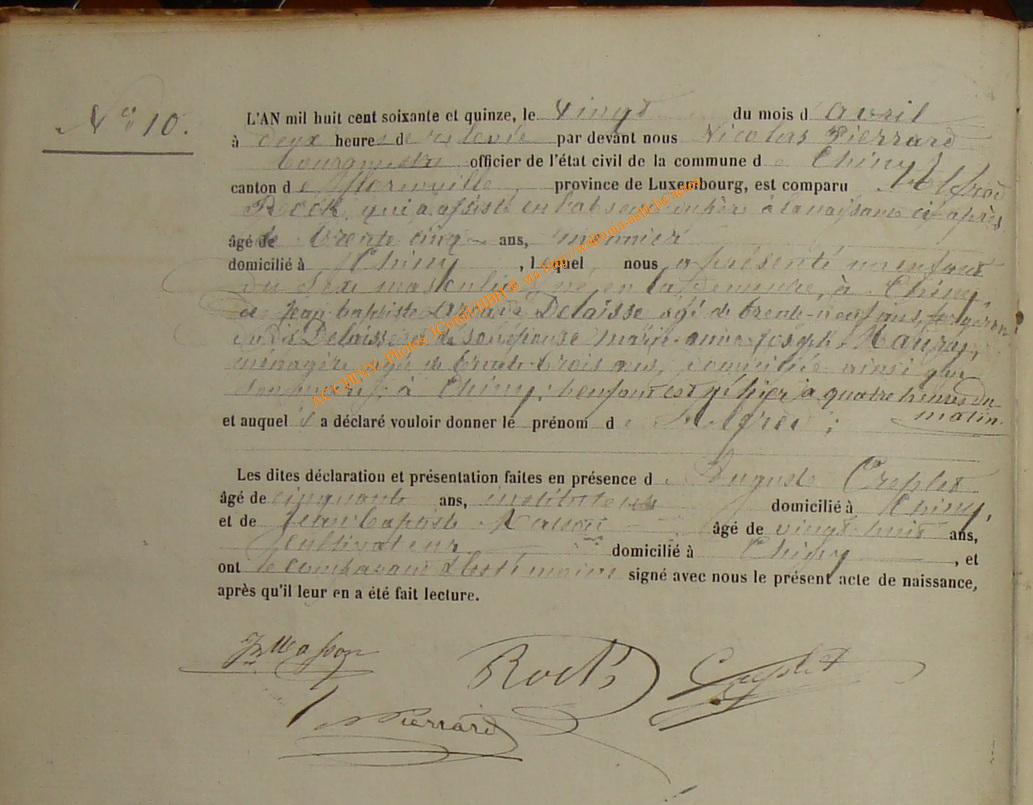 N° 10.
L'AN mil huit cent soixante et quinze, le vingt du mois d'avril
à deux heures de relevée par devant nous Nicolas Pierrard
bourgmestre officier de l'état civil de la commune de Chiny
canton de Florenville, province de Luxembourg, est comparu Alfred
Rock, qui a assisté en l'absence du père à la naissance ci-après
âgé de trente cinq ans, meunier
domicilié à Chiny, lequel nous a présenté un enfant
du sexe masculin, né en la demeure, à Chiny,
de Jean Baptiste Delaisse âgé de trente-neuf ans,
dudit Delaisse et de son épouse marie anne joseph
ménagère, âgée de trente trois ans, domiciliée ainsi que
son mari, à Chiny; l'enfant est né hier à quatre heures du
matin.
et auquel il a déclaré vouloir donner le prénom d' Alfred;
Les dites déclaration et présentation faites en présence d' Auguste Créplet
âgé de cinquante ans, instituteur domicilié à Chiny,
et de Jean baptiste Masson âgé de vingt huit ans,
cultivateur domicilié à Chiny, et
ont le comparant & les témoins signé avec nous le présent acte de naissance,
après qu'il leur en a été fait lecture.
Masson Rock Créplet
Pierrard